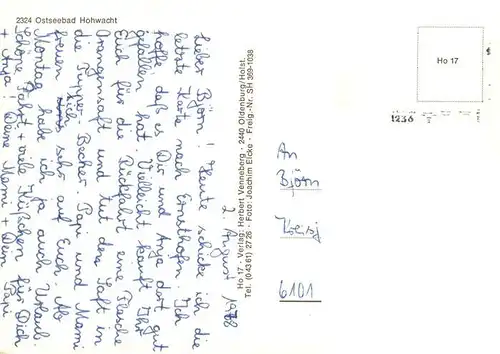 2324 Ostseebad Hohwacht
2. August 1978
Lieber Björn! Heute schicke ich die
letzte Karte nach Ernsthofen. Ich
hoffe daß es Dir und Anja dort gut
gefallen hat. Vielleicht kauft Ihr
Euch für die Rückfahrt eine Flasche
Orangensaft und tut den Saft in
die Tupper-Becher. Papi und Mami
freuen sich sehr auf Euch. Ab
Montag habe ich ja auch Urlaub.
Schöne Fahrt + viele Küßchen für Dich
+ Anja! Deine Mami + Dein Papi
Ho 17 - Verlag: Herbert Venneberg - 2440 Oldenburg/Holst.
Tel. (04361) 2726 - Foto: Joachim Eicke - Freig.-Nr. SH 369-1038
Ho 17
1236
An
Björn
6101